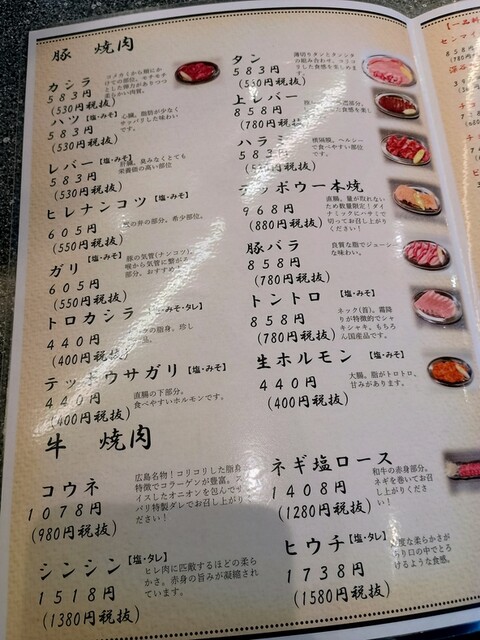 豚 焼肉
カシラ
コメカミから頬にか
けての部位。モチモチ
とした弾力がありつつ
柔らかい肉質。
583円
(530円税抜)
ハツ【塩・みそ】
心臓。脂肪が少なく
サッパリした味わい
です。
583円
(530円税抜)
レバー【塩・みそ】
肝臓。臭みなくとても
栄養価の高い部位
583円
(530円税抜)
ヒレナンコツ【塩・みそ】
605円
の丼の部分。希少部位。
(550円税抜)
ガリ【塩・みそ】
豚の気管(ナンコツ)。
喉から気管に繋が
部分。おすすめ
605円
(550円税抜)
トロカシラ【塩・みそ・タレ】
の脂身。珍し
品。
440円
(400円税抜)
テッポウサガリ【塩・みそ】
直腸の下部分。
食べやすいホルモンです。
440円
(400円税抜)
タン
薄切りタンとタンシタ
の組み合わせ。コリコリ
した食感を楽しめま
す。
583円
(530円税抜)
上レバー
858円
(780円税抜)
ハラミ
横隔膜。ヘルシー
で食べやすい部位
です。
583円
(530円税抜)
テッポウ一本焼
968円
(880円税抜)
直腸。量が取れない
ため数量限定!ダイ
ナミックにハサミで
切ってお召し上がり
ください!
豚バラ
良質な脂でジューシー
な味わい。
858円
(780円税抜)
トントロ【塩・みそ】
ネック(首)。霜降
りが特徴的でシャ
キシャキ。もちろ
ん国産品です。
858円
(780円税抜)
生ホルモン【塩・みそ】
大腸。脂がトロトロ。
甘みがあります。
440円
(400円税抜)
牛 焼肉
コウネ
広島名物!コリコリした脂身
特徴でコラーゲンが豊富。ス
イスしたオニオンを包んで
パリ特製ダレでお召し上がり
ださい!
1078円
(980円税抜)
シンシン【塩・タレ】
ヒレ肉に匹敵するほどの柔ら
かさ。赤身の旨みが凝縮され
ています。
1518円
(1380円税抜)
ネギ塩ロース
和牛の赤身部分。
ネギを巻いてお召
し上がりくださ
い!
1408円
(1280円税抜)
ヒウチ【塩・タレ】
度な柔らかさが
り口の中でとろ
けるような食感。
1738円
(1580円税抜)
【一品料
センマイ
858円
(780円